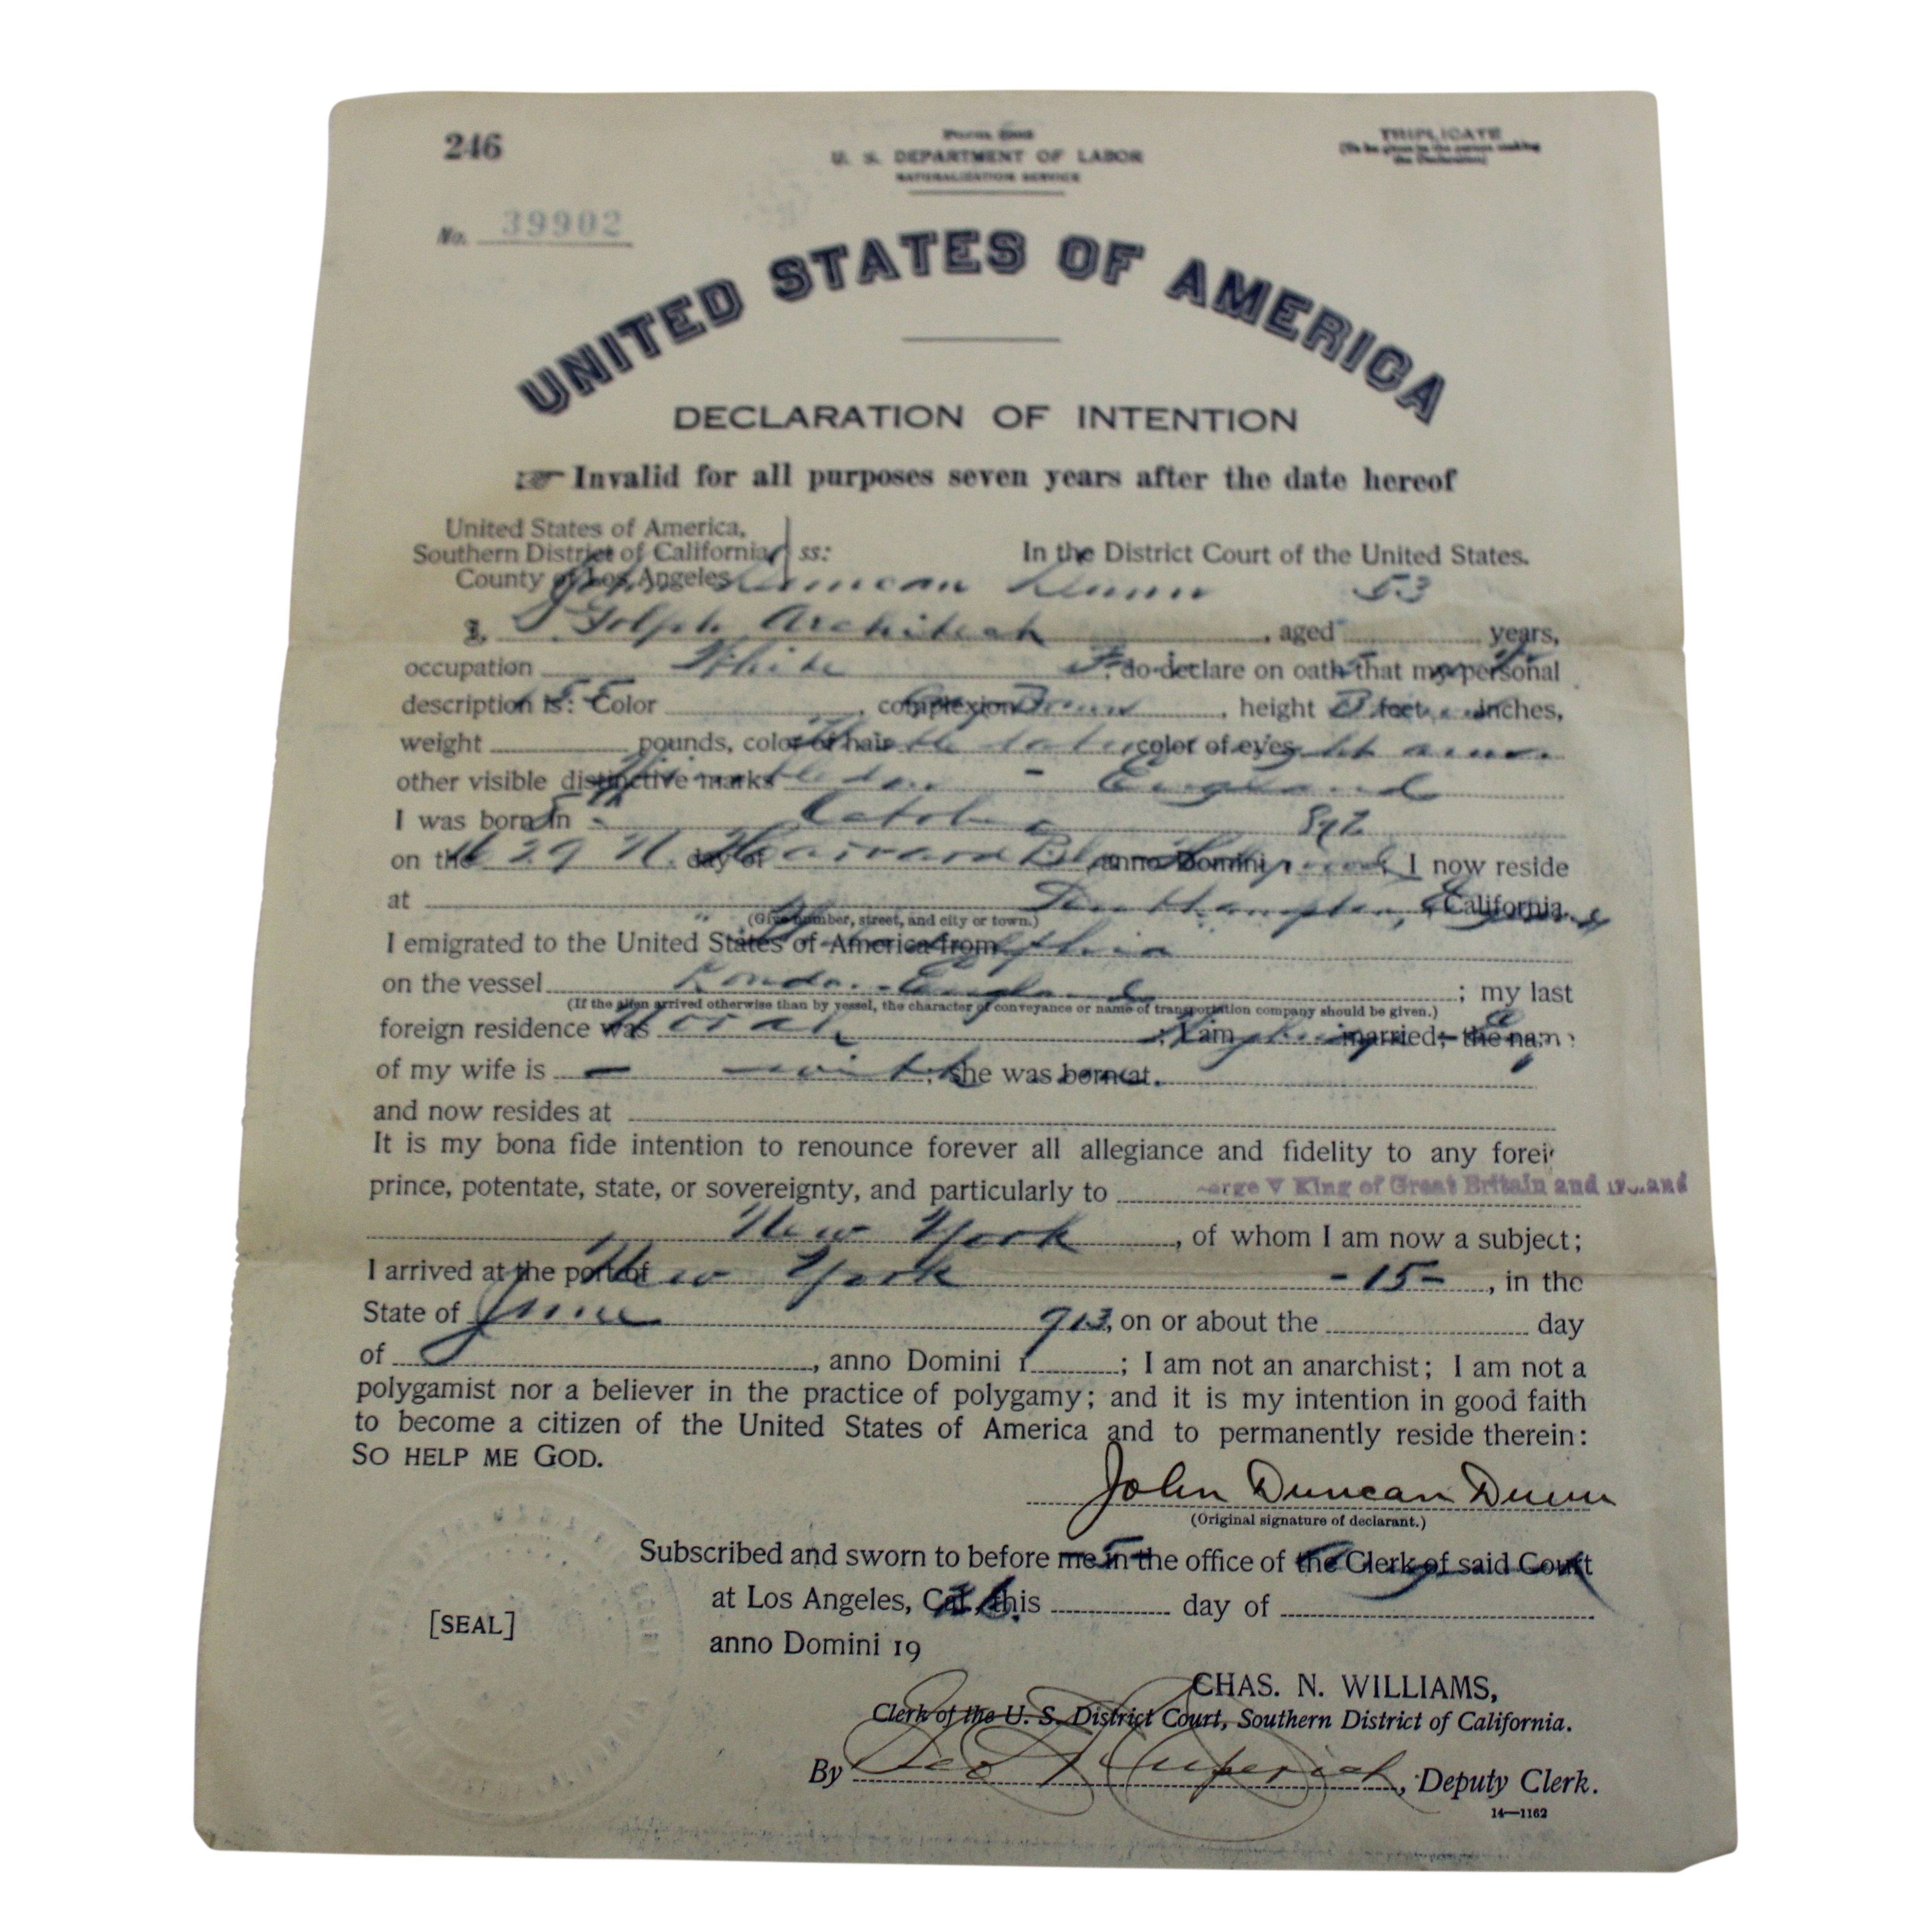 246
U. S. DEPARTMENT OF LABOR
NATURALIZATION SERVICE
TRIPLICATE
(To be given to the person making
the Declaration)
No. 39902
UNITED STATES OF AMERICA
DECLARATION OF INTENTION
☞ Invalid for all purposes seven years after the date hereof
United States of America,
Southern District of California, ss:
County of Los Angeles
In the District Court of the United States.
John Duncan Dunn 53
I, , aged years,
Golph Architect
occupation , do declare on oath that my personal
White 5
description is: Color , complexion , height feet inches,
155 Brown
weight pounds, color of hair , color of eyes
other visible distinctive marks
England
I was born in
5th October 872
on the day of , anno Domini 1 , I now reside
1629 N. Harvard
at , California.
(Give number, street, and city or town.)
I emigrated to the United States of America from
on the vessel ; my last
London England
(If the alien arrived otherwise than by vessel, the character of conveyance or name of transportation company should be given.)
foreign residence was ; I am married; the name
of my wife is ; she was born at
- with me.
and now resides at
It is my bona fide intention to renounce forever all allegiance and fidelity to any forei
prince, potentate, state, or sovereignty, and particularly to orge V King of Great Britain and Ireland
New York , of whom I am now a subject;
I arrived at the port of , in the
New York -15-
State of , on or about the day
June 913
of , anno Domini 1 ; I am not an anarchist; I am not a
polygamist nor a believer in the practice of polygamy; and it is my intention in good faith
to become a citizen of the United States of America and to permanently reside therein:
SO HELP ME GOD.
John Duncan Dunn
(Original signature of declarant.)
Subscribed and sworn to before me in the office of the Clerk of said Court
-5-
at Los Angeles, Cal., this day of
[SEAL]
anno Domini 19
CHAS. N. WILLIAMS,
Clerk of the U. S. District Court, Southern District of California.
By , Deputy Clerk.
14—1162